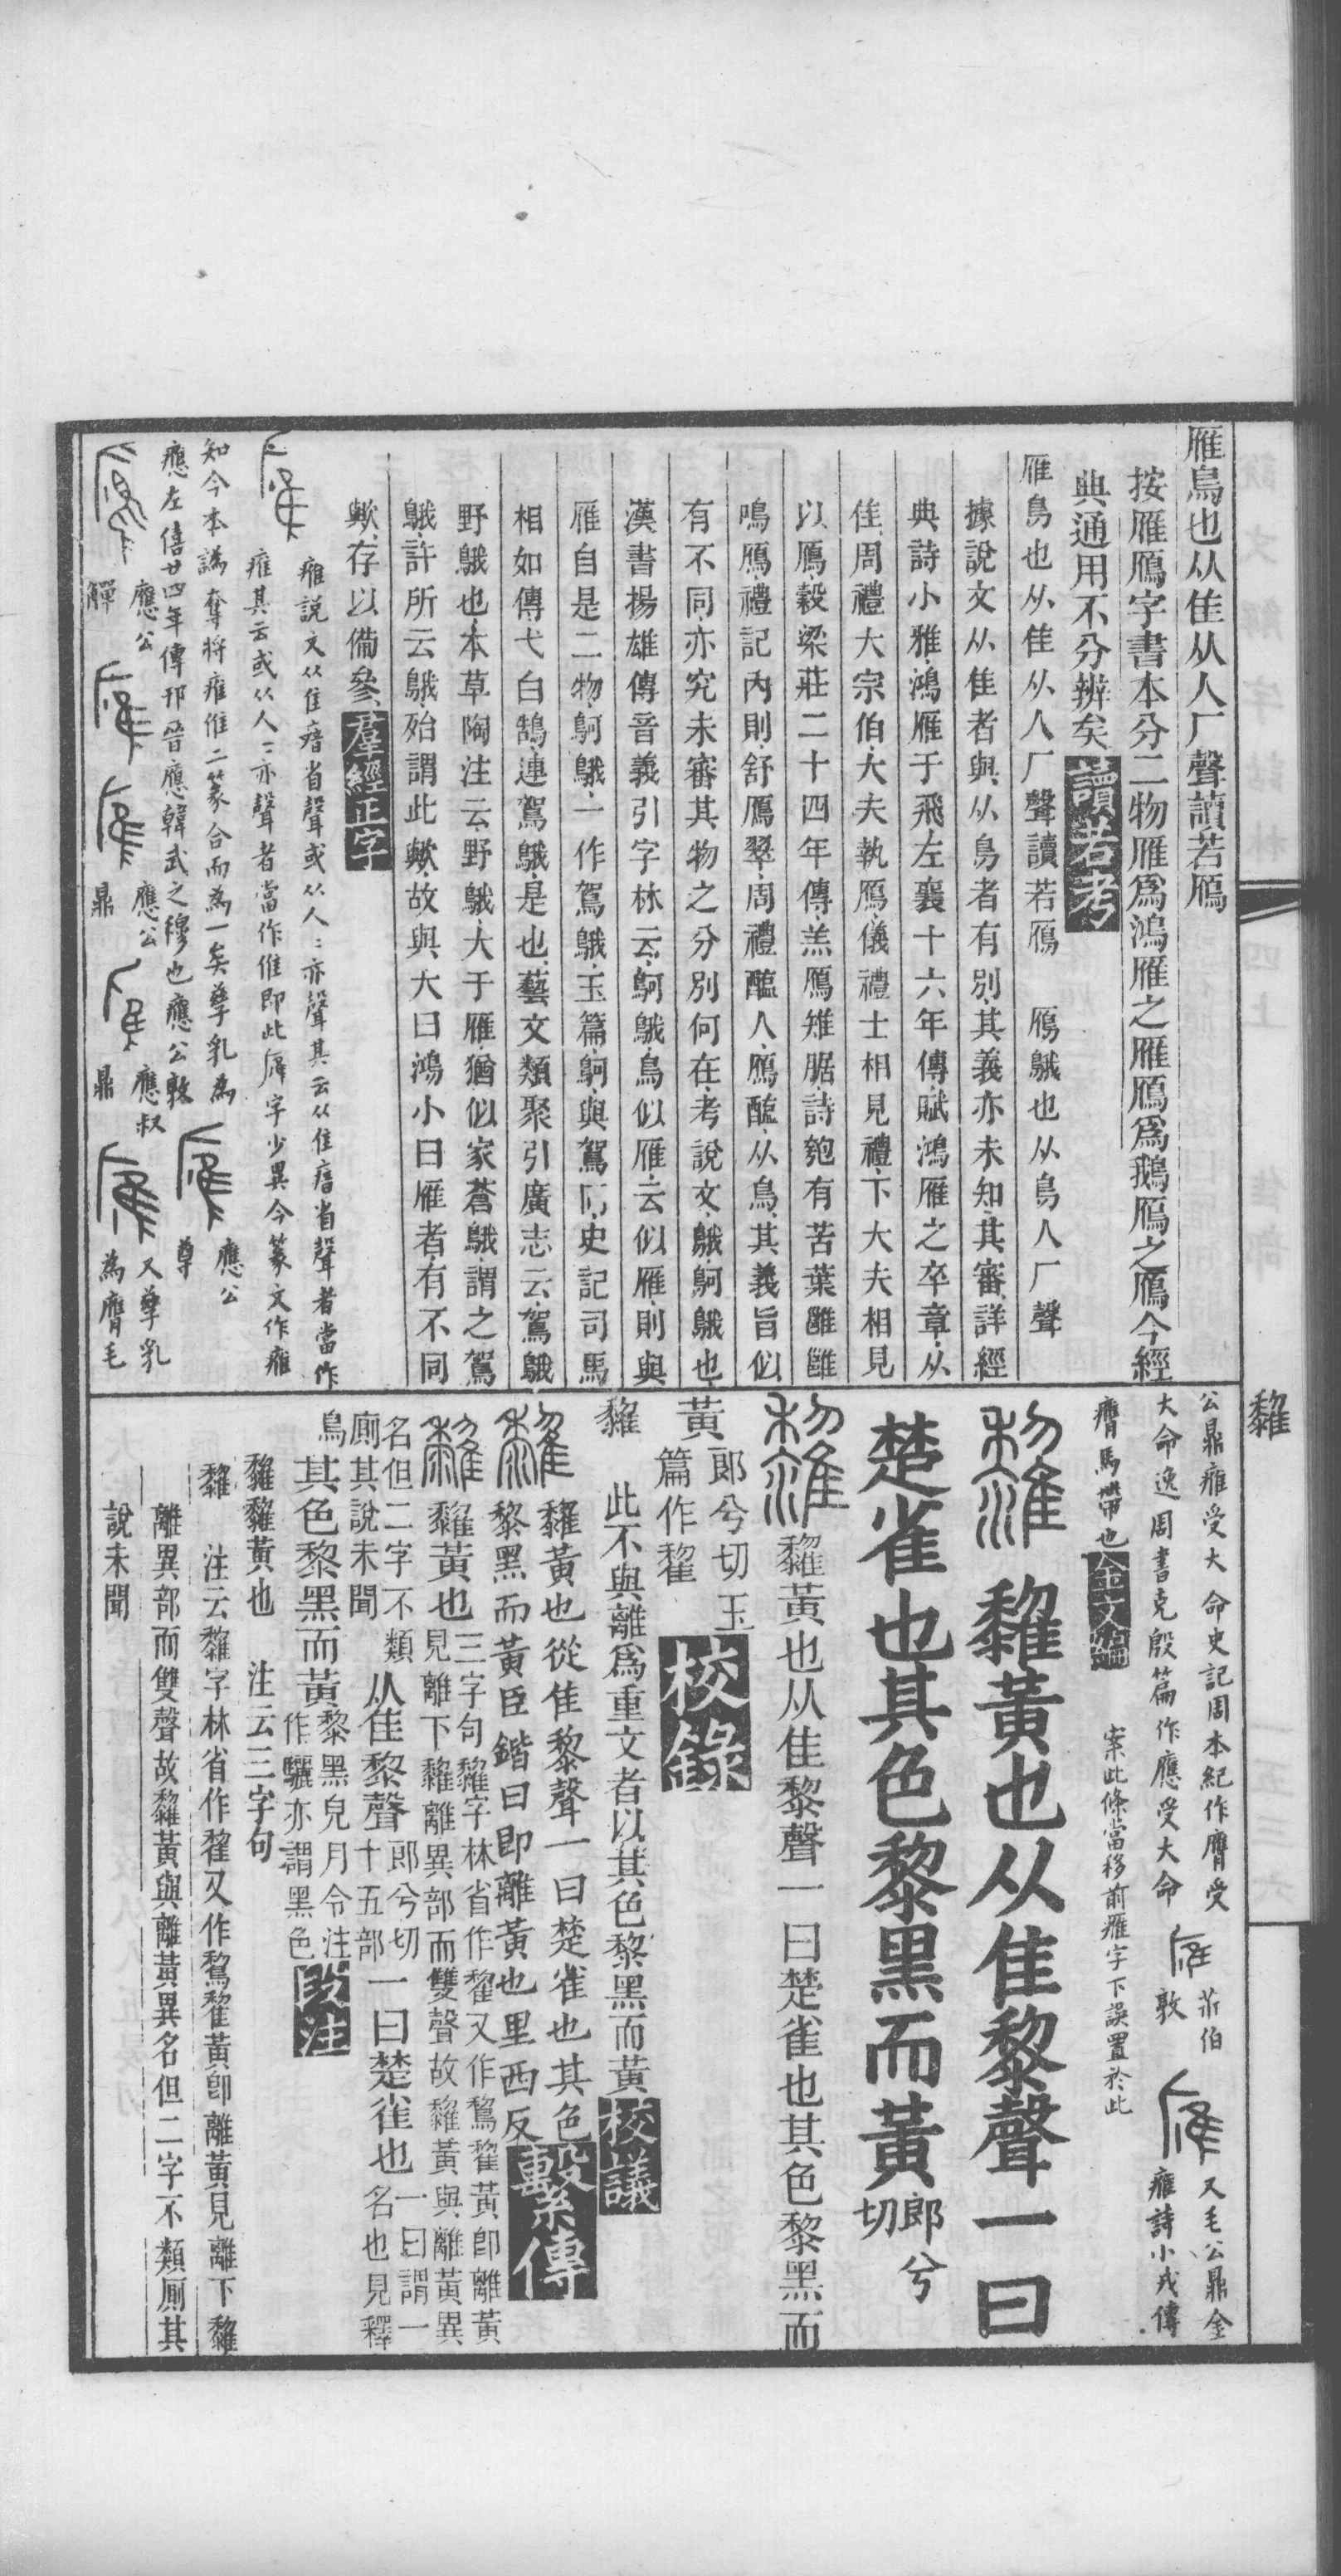 雁鳥也从隹从人厂聲讀若鴈
按雁鴈字書本分二物雁爲鴻雁之雁鴈爲鵝鴈之鴈今經
典通用不分辨矣讀若考
雁鳥也从隹从人厂聲讀若鴈 鴈䳘也从鳥人厂聲
據說文从隹者與从鳥者有別其義亦未知其審詳經
典詩小雅鴻雁于飛左襄十六年傳賦鴻雁之卒章从
隹周禮大宗伯大夫執鴈儀禮士相見禮下大夫相見
以鴈穀梁莊二十四年傳羔鴈雉腒詩匏有苦葉雝雝
鳴鴈禮記內則舒鴈翠周禮醢人鴈醢从鳥其義旨似
有不同亦究未審其物之分別何在考說文䳘䳘也
漢書揚雄傳音義引字林云䳘鳥似雁云似雁則與
雁自是二物䳘一作駕䳘玉篇與駕同史記司馬
相如傳弋白鵠連駕䳘是也藝文類聚引廣志云駕䳘
野䳘也本草陶注云野䳘大于雁猶似家蒼䳘謂之駕
䳘許所云䳘殆謂此歟故與大曰鴻小曰雁者有不同
歟存以備參羣經正字
雁說文从隹瘖省聲或从人人亦聲其云从隹瘖省聲者當作
雁其云或从人人亦聲者當作惟即此雁字少異今篆文作雁
知今本譌奪將雁惟二篆合而爲一矣孳乳爲
應左僖廿四年傳邘晉應韓武之穆也應公敦
應公尊
應公觶
應公鼎
應叔鼎
又孳乳爲膺毛
䨄
公鼎雁受大命史記周本紀作膺受
大命逸周書克殷篇作應受大命
䧹伯敦
又毛公鼎金雁詩小戎傳
膺馬帶也金文編
案此條當移前雁字下誤置於此
䨄黃也从隹黎聲一曰
楚雀也其色黎黑而黃郎兮切
䨄黃也从隹黎聲一曰楚雀也其色黎黑而
黃郎兮切玉篇作䨄校錄
䨄
此不與離爲重文者以其色黎黑而黃校議
䨄黃也從隹黎聲一曰楚雀也其色
黎黑而黃臣鍇曰即離黃也里西反繫傳
䨄黃也三字句䨄字林省作䨄又作鵹䨄黃卽離黃
見離下䨄離異部而雙聲故䨄黃與離黃異
名但二字不類廁其說未聞从隹黎聲郎兮切十五部一曰楚雀也一曰謂一名也見釋
鳥其色黎黑而黃黎黑皃月令注作驪亦謂黑色段注
䨄䨄黃也 注云三字句
䨄 注云䨄字林省作䨄又作鵹䨄黃卽離黃見離下䨄
離異部而雙聲故䨄黃與離黃異名但二字不類廁其
說未聞